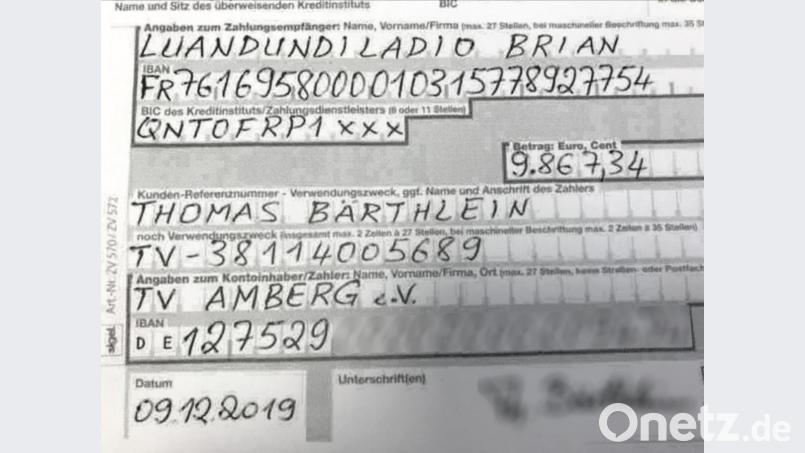 Name und Sitz des überweisenden Kreditinstituts BIC
Angaben zum Zahlungsempfänger: Name, Vorname/Firma (max. 27 Stellen, bei maschineller Beschriftung max. 35 St
LUANDUNDILADIO BRIAN
IBAN
FR7616958000010315778927754
BIC des Kreditinstituts/Zahlungsdienstleisters (8 oder 11 Stellen)
QNTOFRP1xxx
Betrag: Euro, Cent
9.867,34
Kunden-Referenznummer - Verwendungszweck, ggf. Name und Anschrift des Zahlers
THOMAS BÄRTHLEIN
noch Verwendungszweck (insgesamt max. 2 Zeilen à 27 Stellen, bei maschineller Beschriftung max. 2 Zeilen à 35 Stellen)
TV-38114005689
Angaben zum Kontoinhaber/Zahler: Name, Vorname/Firma, Ort (max. 27 Stellen, keine Straßen- oder Postfach
TV AMBERG e.V.
IBAN
DE127529
Datum
Unterschrift(en)
09.12.2019
sigel Art.-Nr. ZV 570/ZV 572
Onetz.de